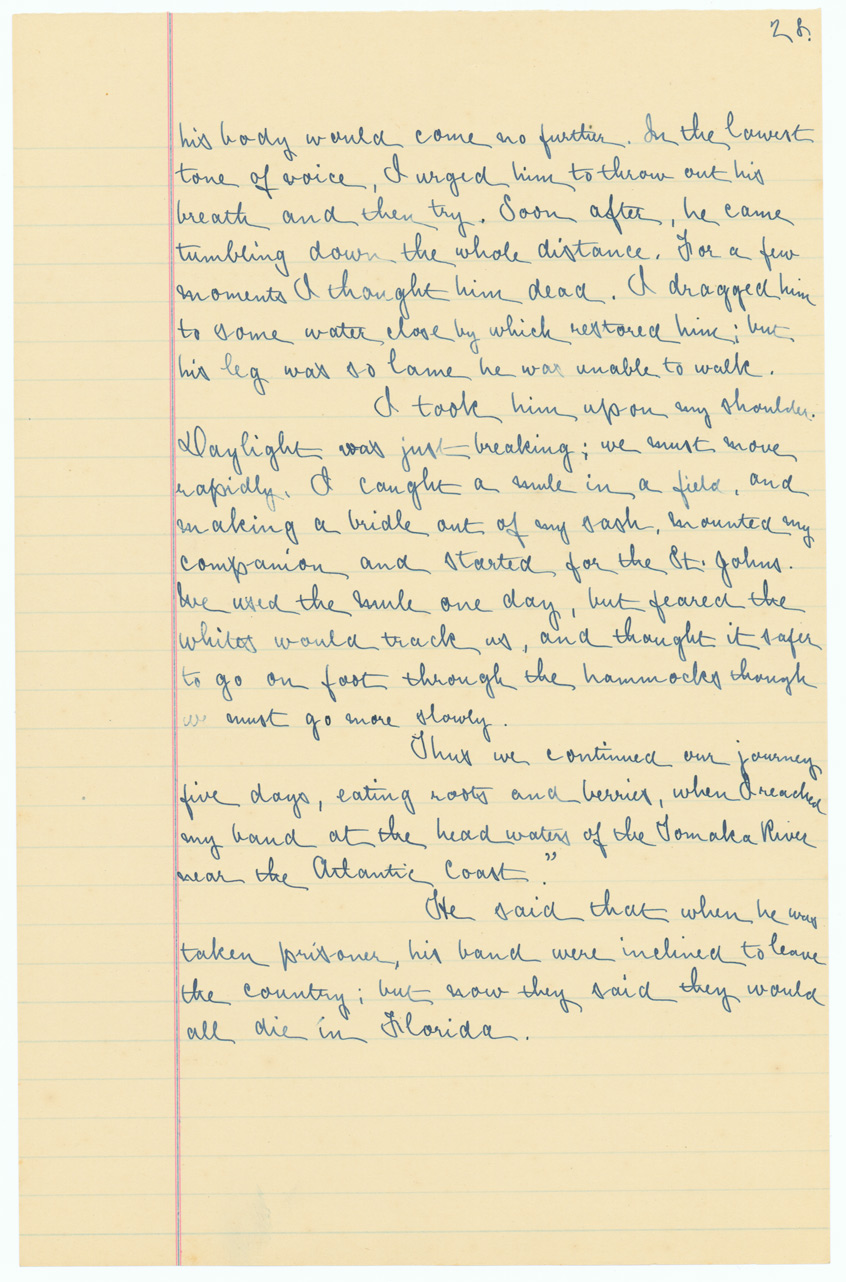 28.
his body would come no further. In the lowest
tone of voice, I urged him to throw out his
breath and then try. Soon after, he came
tumbling down the whole distance. For a few
moments I thought him dead. I dragged him
to some water close by which restored him; but
his leg was so lame he was unable to walk.
I took him upon my shoulder.
Daylight was just breaking; we must move
rapidly. I caught a mule in a field, and
making a bridle out of my sash, mounted my
companion and started for the St. Johns.
We used the mule one day, but feared the
whites would track us, and thought it safer
to go on foot through the hammocks though
we must go more slowly.
Thus we continued our journey
five days, eating roots and berries, when I reached
my band at the head waters of the Tomaka River
near the Atlantic Coast."
He said that when he was
taken prisoner, his band were inclined to leave
the country; but now they said they would
all die in Florida.